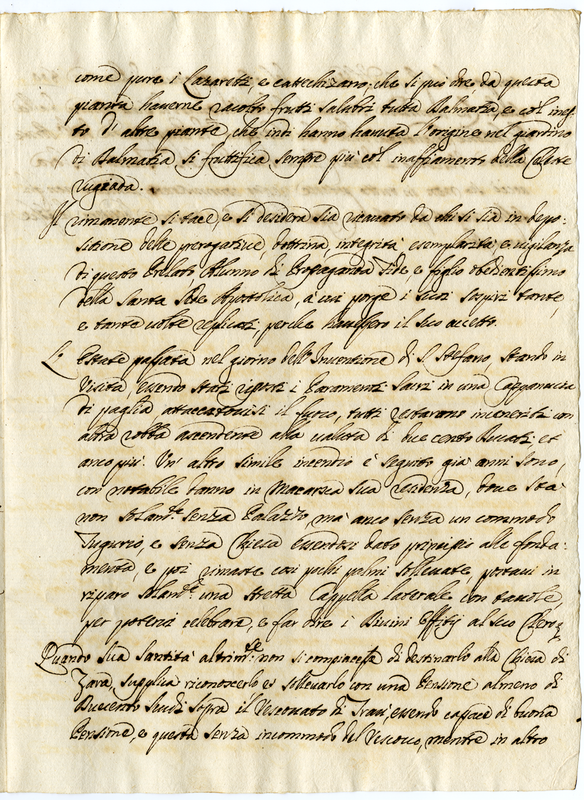 come pure i Lazaretti, e catechizano; che si può dire da questa
pianta haverne racolto frutti salutri tutta Dalmatia, e col inef-
to d'altre piante, che indi hanno havuta l'origine nel giardino
di Dalmatia si fruttifica sempre più col inaffiamento della Celeste
rugiada.
Il rimanente si tace, e si desidera sia ricavato da chi si sia in depo-
sitione delle prerogative, dottrina, integrità, esemplarità, e vigilanza
di questo Prelato Alunno di Propaganda Fide, e figlio obedientissimo
della Santa Sede Apostolica, à cui porge i suoi sospiri tante,
e tante volte replicati, perche havessero il suo accetto.
L'Estate passata nel giorno dell'Inventione di S. Stefano stando in
Visita, essendo stati riposti i Paramenti Sacri in una Cappanuccia
di paglia, attaccattovisi il fuoco, tutti restarono inceneriti con
altra robba ascendente alla valuta di due cento Ducati et
anco più. Un' altro simile incendio è seguito già anni sono,
con notabile danno in Macarsca sua residenza, dove stà
non solam.te senza Palazzo, mà anco senza un commodo
Tugurio, e senza Chiesa essendosi dato principio alle fonda-
menta, e poi rimaste così pochi palmi sollevate, portavi in
riparo solam.te una stretta Cappella laterale con tavole,
per potervi celebrare, e far dire i Divini Officij al suo Clero.
Quando Sua Santità altrim.te non si compiacesse di destinarlo alla Chiesa di
Zara, supplica riconoscerlo, e sollevarlo con una Pensione almeno di
Duecento scudi sopra il Vescovato di Traù, essendo cappace di buona
Pensione, e questa senza incommodo del Vescovo, mentre in altro